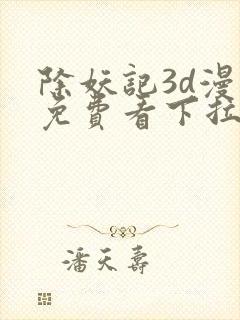 除妖记3d漫
免费看下拉
潘天寿